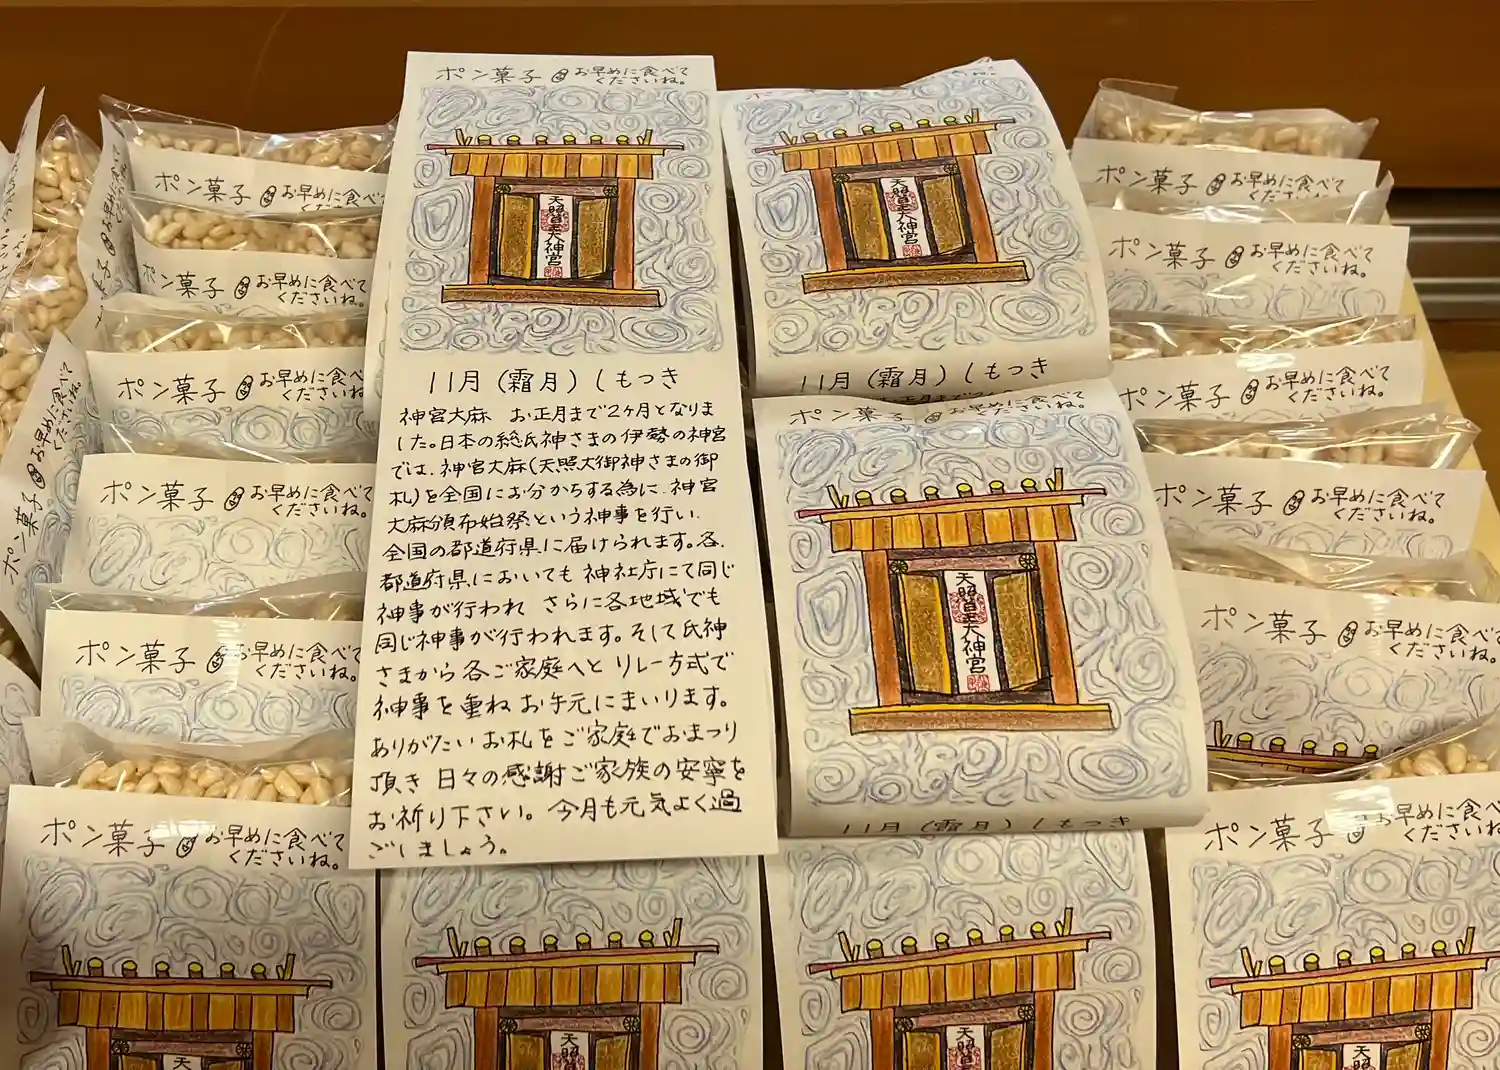 ポン菓子 お早めに食べて
くださいね。
天照皇大神宮
11月（霜月）しもつき
神宮大麻 お正月まで2ヶ月となりま
した。日本の総氏神さまの伊勢の神宮
では、神宮大麻(天照大御神さまの御
札)を全国にお分かちする為に、神宮
大麻頒布始祭という神事を行い、
全国の都道府県に届けられます。各、
都道府県においても神社庁にて同じ
神事が行われ さらに各地域でも
同じ神事が行われます。そして氏神
さまから各ご家庭へと リレー方式で
神事を重ねお手元にまいります。
ありがたいお札をご家庭でおまつり
頂き 日々の感謝ご家族の安寧を
お祈り下さい。今月も元気よく過
ごしましょう。
天照皇大神宮
11月（霜月）しもつき
ポン菓子 お早めに食べて
くださいね。
天照皇大神宮
11月（霜月）しもつき
ポン菓子 お早めに食べて
ポン菓子 お早めに食べて
くださいね。
ポン菓子 お早めに食べ
くださいね。
ポン菓子 お早めに食べて
くださいね。
ポン菓子 お早めに食べて
くださいね。
ポン菓子 お早めに食べて
くださいね。
ポン菓子 お早めに食べて
ポン菓子 お早めに食べて
くださいね。
ポン菓子 お早めに食べて
くださいね。
ポン菓子 お早めに食べて
くださいね。
ポン菓子 お早めに食べて
くださいね。
ポン菓子 お早めに食べて
くださいね。
天照
天照
天照